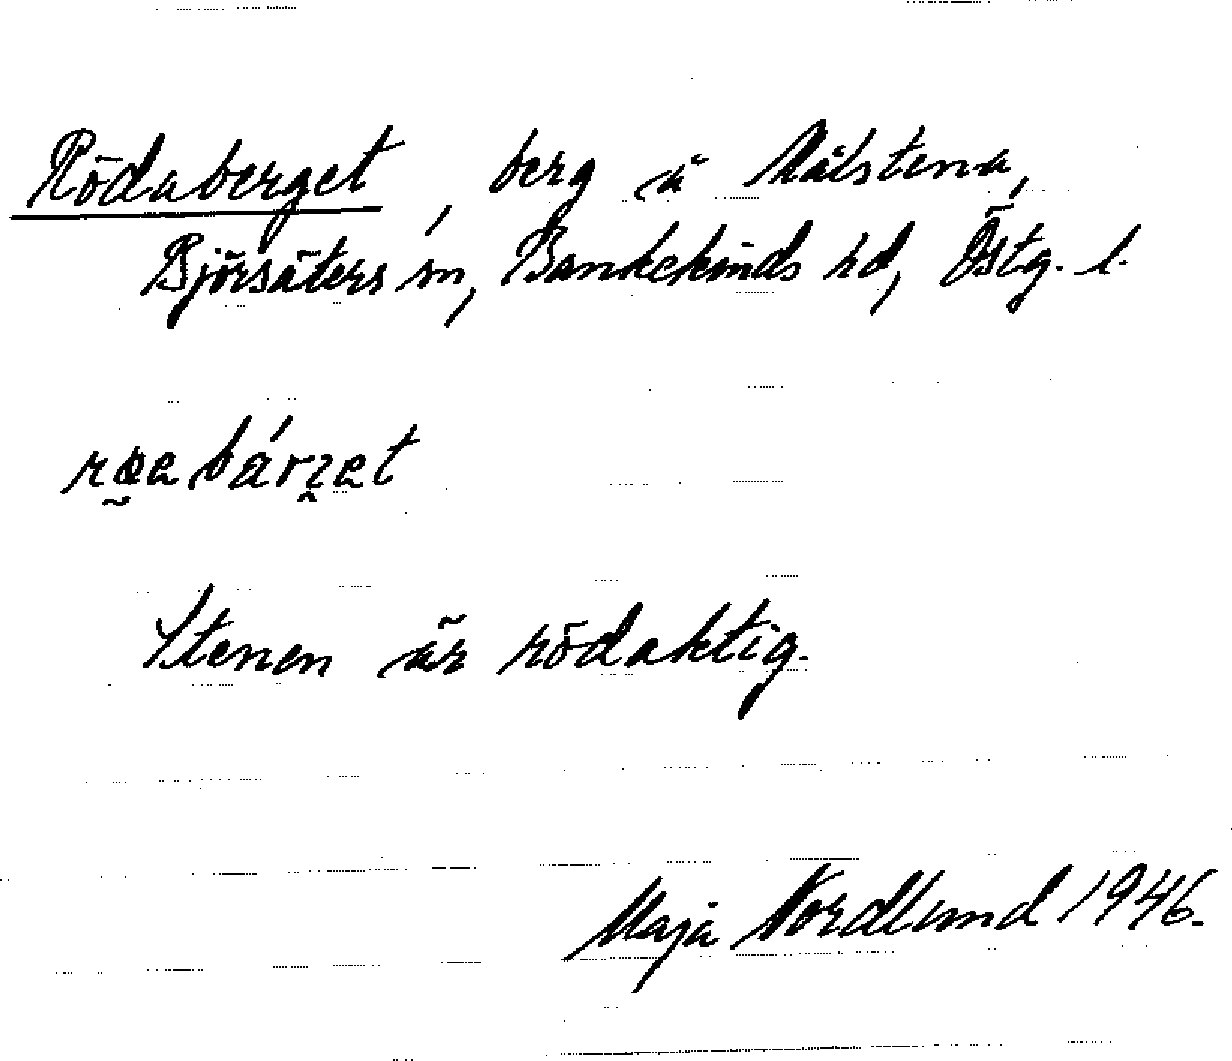 Rödaberget, berg å Målstena,
Björsäters sn, Bankekinds hd, Östg. l.
Stenen är rödaktig.
Maja Nordlund 1946.